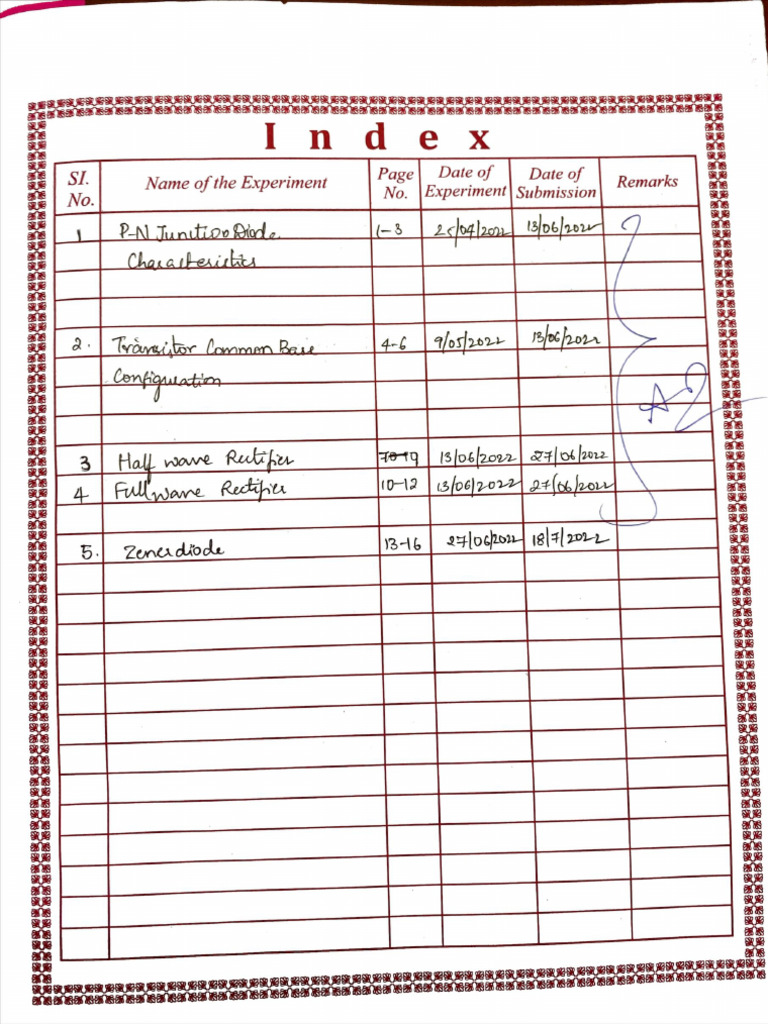 Index
SI. No. Name of the Experiment Page No. Date of Experiment Date of Submission Remarks
1 P-N Junction Diode 1-3 25/04/2022 13/06/2022
Characteristics
2. Transistor Common Base 4-6 9/05/2022 13/06/2022
Configuration
3 Half wave Rectifier 13/06/2022 27/06/2022
4 Full wave Rectifier 10-12 13/06/2022 27/06/2022
5. Zener diode 13-16 27/06/2022 18/7/2022